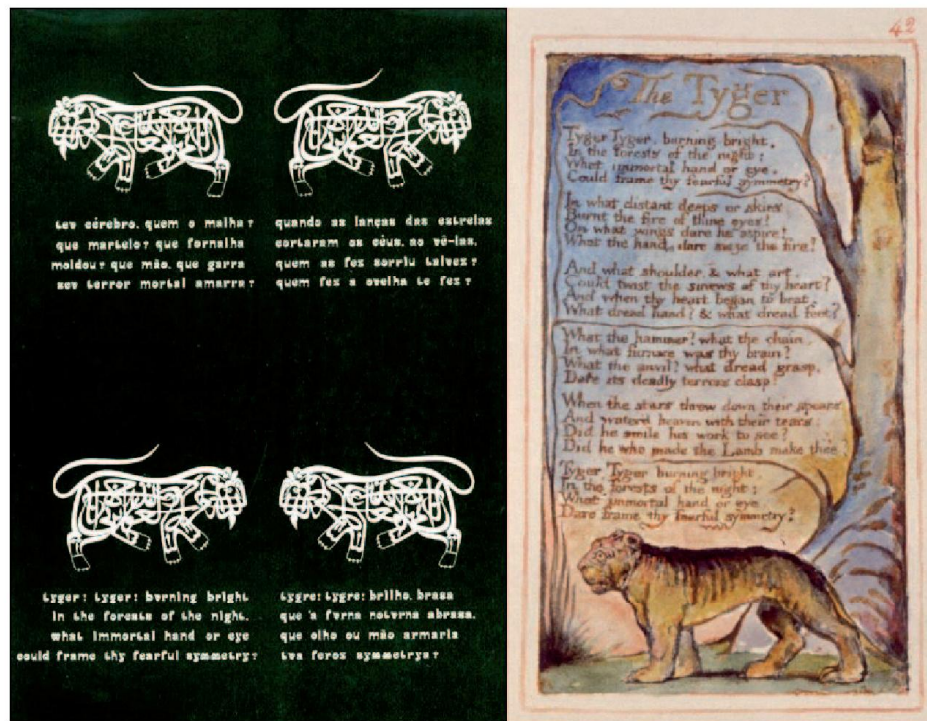 teu cérebro, quem o malha?
que martelo? que fornalha
moldou? que mão, que garra
seu terror mortal amarra?
quando as lanças das estrelas
cortaram os céus, ao vê-las,
quem as fez sorriu talvez?
quem fez a ovelha te fez?
tyger! tyger! burning bright
in the forests of the night,
what immortal hand or eye
could frame thy fearful symmetry?
tygre! tygre! brilho, brasa
que a furna noturna abrasa,
que olho ou mão armaria
tua feroz symmetrya?
42
The Tyger
Tyger Tyger, burning bright,
In the forests of the night;
What immortal hand or eye,
Could frame thy fearful symmetry?
In what distant deeps or skies
Burnt the fire of thine eyes!
On what wings dare he aspire!
What the hand, dare sieze the fire!
And what shoulder, & what art,
Could twist the sinews of thy heart?
And when thy heart began to beat,
What dread hand? & what dread feet?
What the hammer? what the chain,
In what furnace was thy brain?
What the anvil? what dread grasp,
Dare its deadly terrors clasp!
When the stars threw down their spears
And water'd heaven with their tears:
Did he smile his work to see?
Did he who made the Lamb make thee?
Tyger Tyger burning bright,
In the forests of the night:
What immortal hand or eye,
Dare frame thy fearful symmetry?